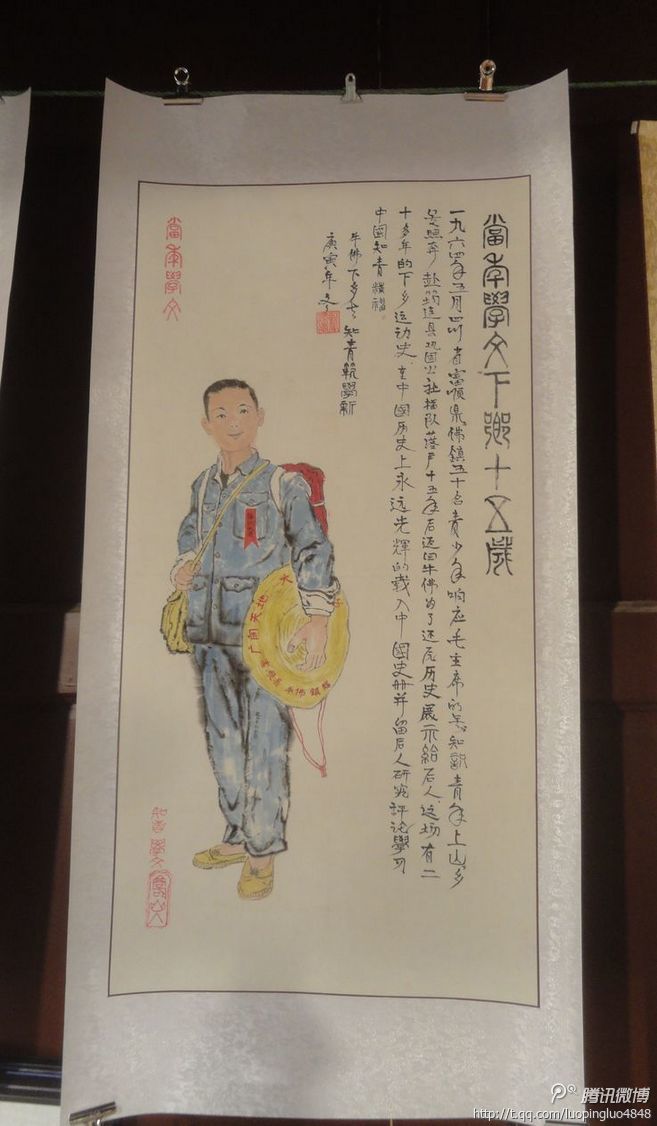 當年學文下鄉十五歲
一九六四年五月四川省富順県佛鎮五十名青少年响应毛主席的号知識青年上山乡
照奔赴筠连县巩固公社插队落户十五年后返回牛佛为了还原历史展示给后人.这场有二
十多年的下乡运动史.在中国历史上永远光輝的载入中國史册并留后人研究評论學习
中國知青
牛佛下乡 知青 學新
庚寅年冬
當年學文
广阔天地
大
牛佛鎮
知青學文
腾讯微博
http://t.qq.com/luopingluo4848